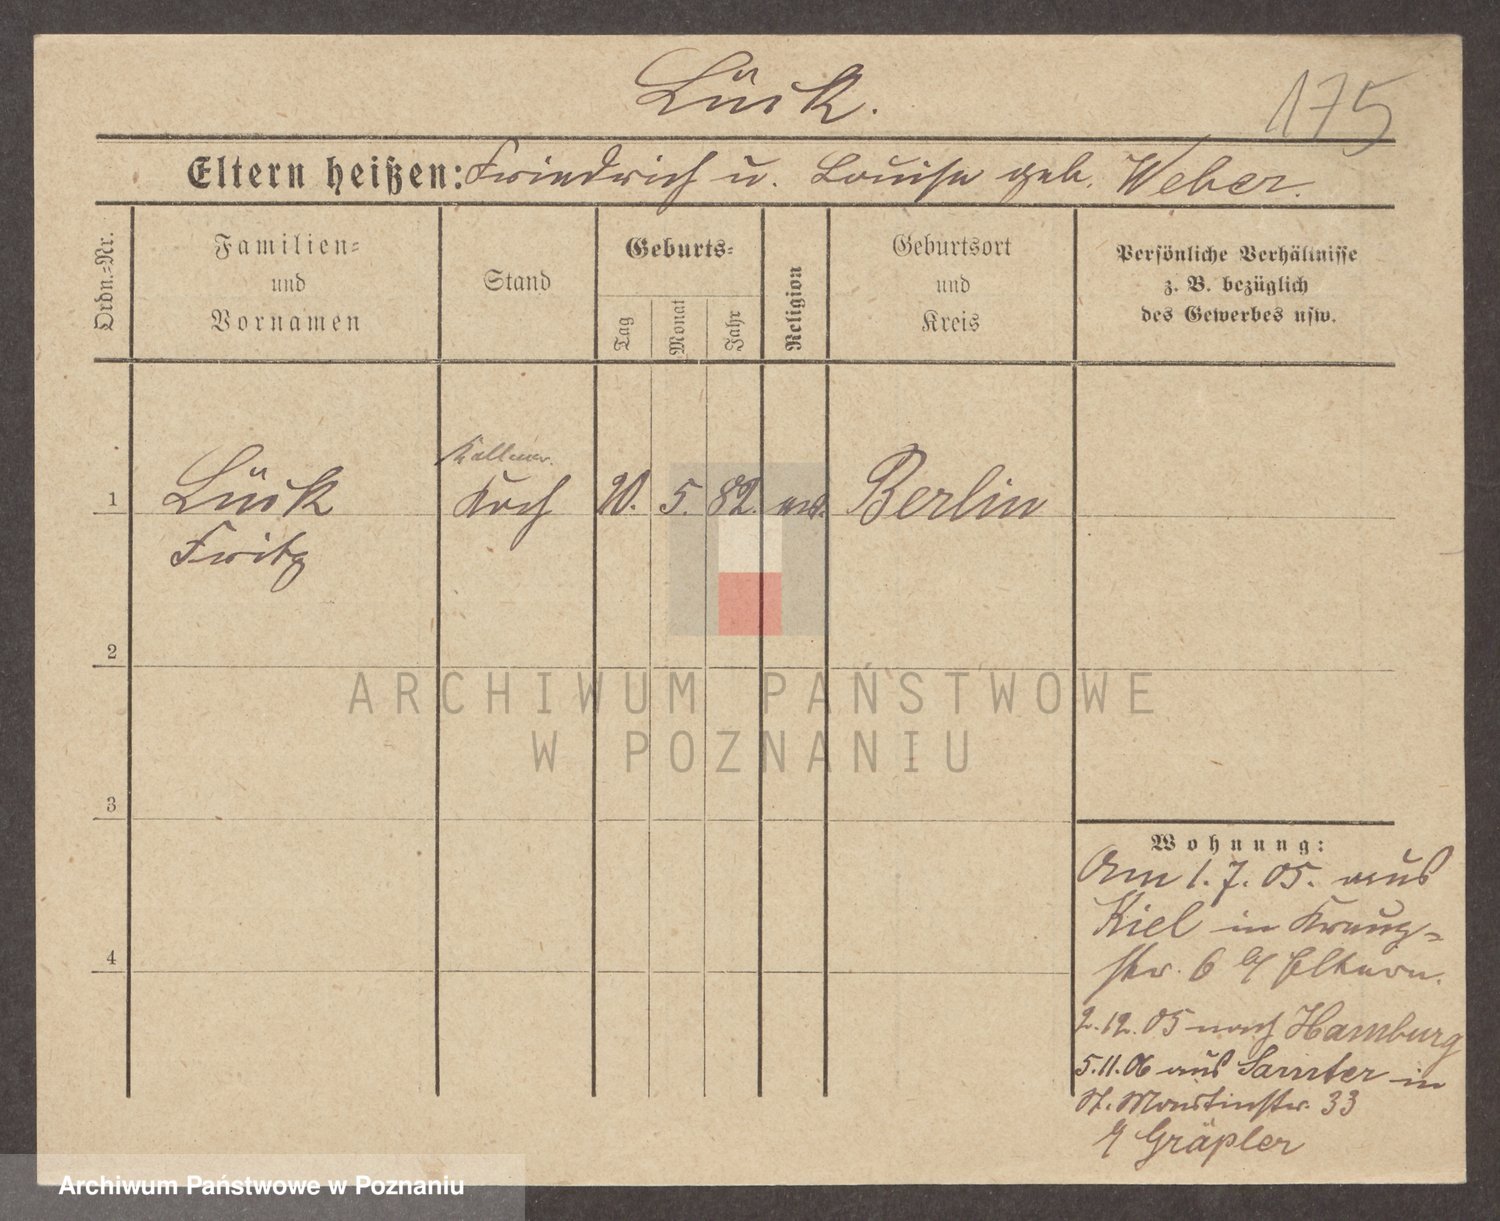 Lück.
175
Eltern heißen: Friedrich u. Louise geb. Weber.
Ordn.=Nr.
Familien=
und
Vornamen
Stand
Geburts=
Tag
Monat
Jahr
Religion
Geburtsort
und
Kreis
Persönliche Verhältnisse
z. B. bezüglich
des Gewerbes usw.
1
Lück
Fritz
Kellner.
Koch
20. 5. 82. ev.
Berlin
2
3
4
Wohnung:
Am 1. 7. 05. aus
Kiel in Kreuz=
str. 6 b/ Eltern.
2. 12. 05 nach Hamburg
5. 11. 06 aus Samter in
St. Martinstr. 33
Gräpler
ARCHIWUM PAŃSTWOWE
W POZNANIU
Archiwum Państwowe w Poznaniu